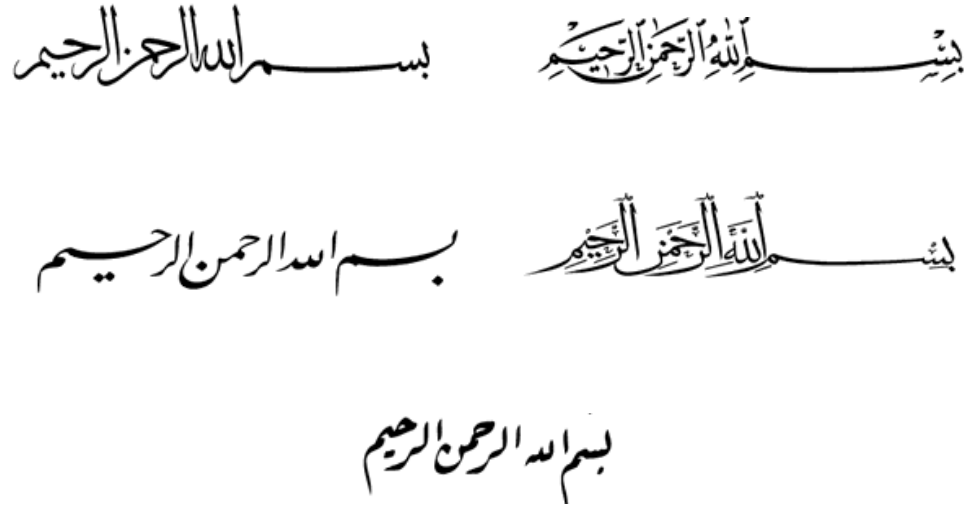 بِسْمِ اللّٰهِ الرَّحْمٰنِ الرَّحِيْمِ
بسم الله الرحمن الرحيم
بِسْمِ اللَّهِ الرَّحْمٰنِ الرَّحِيْمِ
بسم الله الرحمن الرحيم
بسم الله الرحمن الرحيم